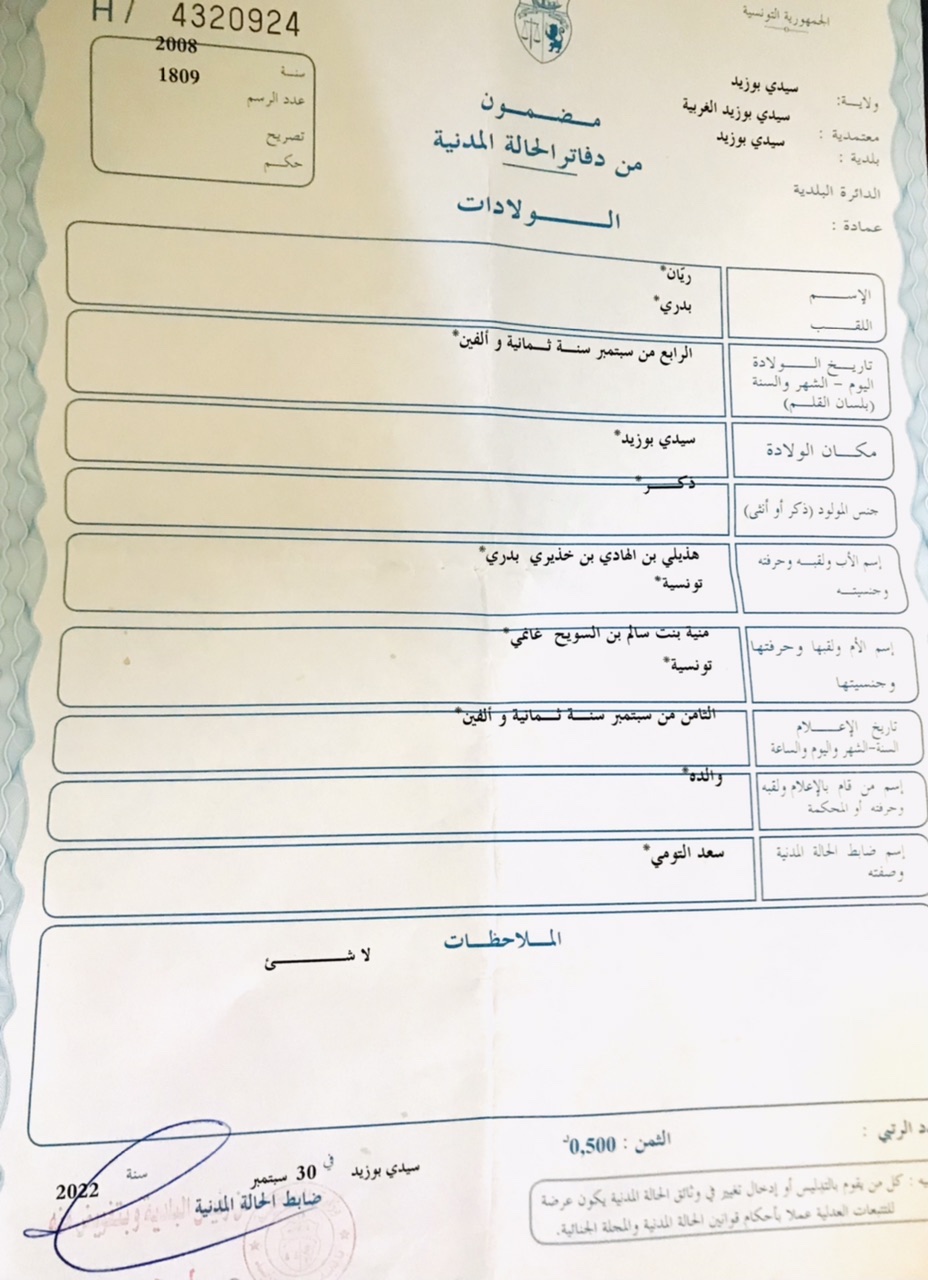 H/ 4320924
الجمهورية التونسية
سنة 2008
عدد الرسم 1809
تصريح
حكم
ولاية: سيدي بوزيد
معتمدية : سيدي بوزيد الغربية
بلدية : سيدي بوزيد
الدائرة البلدية
عمادة :
مضمون
من دفاتر الحالة المدنية
الولادات
الإسم ريّان*
اللقب بدري*
تاريخ الولادة
اليوم - الشهر والسنة
(بلسان القلم)
الرابع من سبتمبر سنة ثمانية و ألفين*
مكان الولادة سيدي بوزيد*
جنس المولود (ذكر أو أنثى) ذكر*
إسم الأب ولقبه وحرفته
وجنسيته
هذيلي بن الهادي بن خذيري بدري*
تونسية*
إسم الأم ولقبها وحرفتها
وجنسيتها
منية بنت سالم بن السويح غانمي*
تونسية*
تاريخ الإعلام
السنة-الشهر واليوم والساعة
الثامن من سبتمبر سنة ثمانية و ألفين*
إسم من قام بالإعلام ولقبه
وحرفته أو المحكمة
والده*
إسم ضابط الحالة المدنية
وصفته
سعد التومي*
الملاحظات
لا شئ
د الرتبي :
الثمن : 0,500د
سيدي بوزيد في 30 سبتمبر سنة 2022
ضابط الحالة المدنية
يه : كل من يقوم بالتدليس أو إدخال تغيير في وثائق الحالة المدنية يكون عرضة
للتتبعات العدلية عملا بأحكام قوانين الحالة المدنية والمجلة الجنائية.